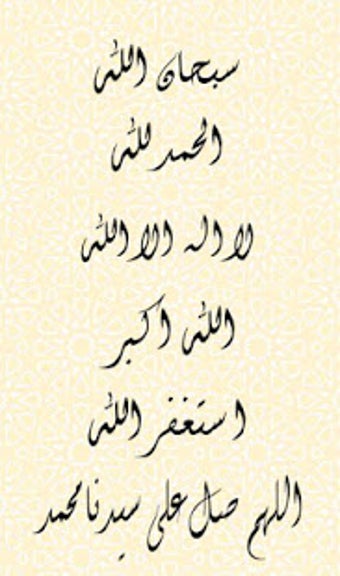 سبحان الله
الحمد لله
لا اله الا الله
الله اكبر
استغفر الله
اللهم صل على سيدنا محمد